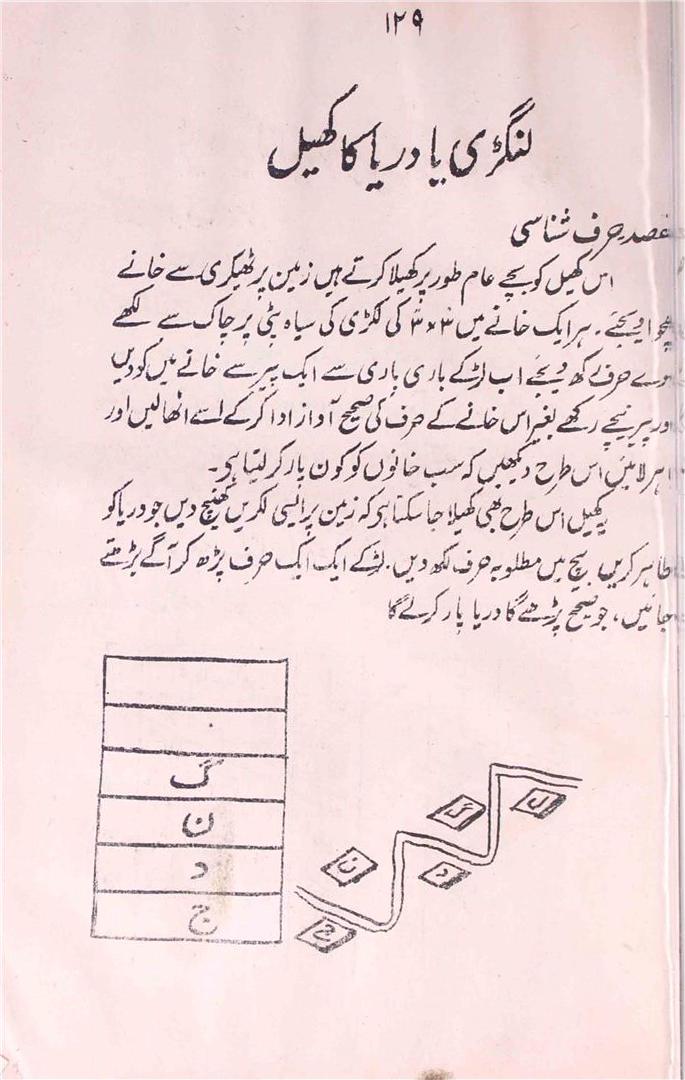 ۱۲۹
لنگڑی یا دریا کا کھیل
مقصد حرف شناسی
اس کھیل کو بچے عام طور پر کھیلا کرتے ہیں زمین پر ٹھیکری سے خانے
کھچوا دیجئے۔ ہر ایک خانے میں ۳ × ۳ کی لکڑی کی سیاہ پٹی پر چاک سے لکھے
ہوے حرف رکھ دیجئے اب لڑکے باری باری سے ایک پیر سے خانے میں کودیں
اور پیر نیچے رکھے بغیر اس خانے کے حرف کی صحیح آواز ادا کر کے اسے اٹھا لیں اور
باہر لائیں اس طرح دیکھیں کہ سب خانوں کو کون پار کر لیتا ہی۔
یہ کھیل اس طرح بھی کھیلا جا سکتا ہی کہ زمین پر ایسی لکریں کھینچ دیں جو دریا کو
ظاہر کریں بیچ میں مطلوبہ حرف لکھ دیں۔ لڑکے ایک ایک حرف پڑھ کر آگے بڑھتے
جائیں، جو صحیح پڑھے گا دریا پار کرلے گا
گ
ن
د
ج
ل
گ
د
ن
ج